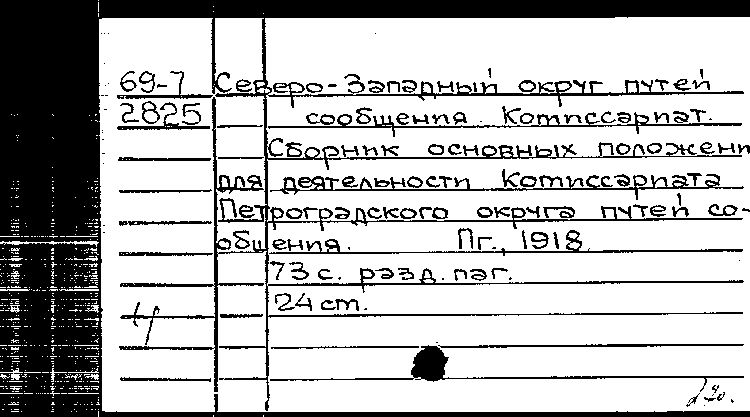 69-7 Северо-Западный округ путей
2825 сообщения. Комиссариат.
Сборник основных положени
для деятельности Комиссариата
Петроградского округа путей со-
общения. Пг., 1918.
73 с. разд. паг.
24 см.